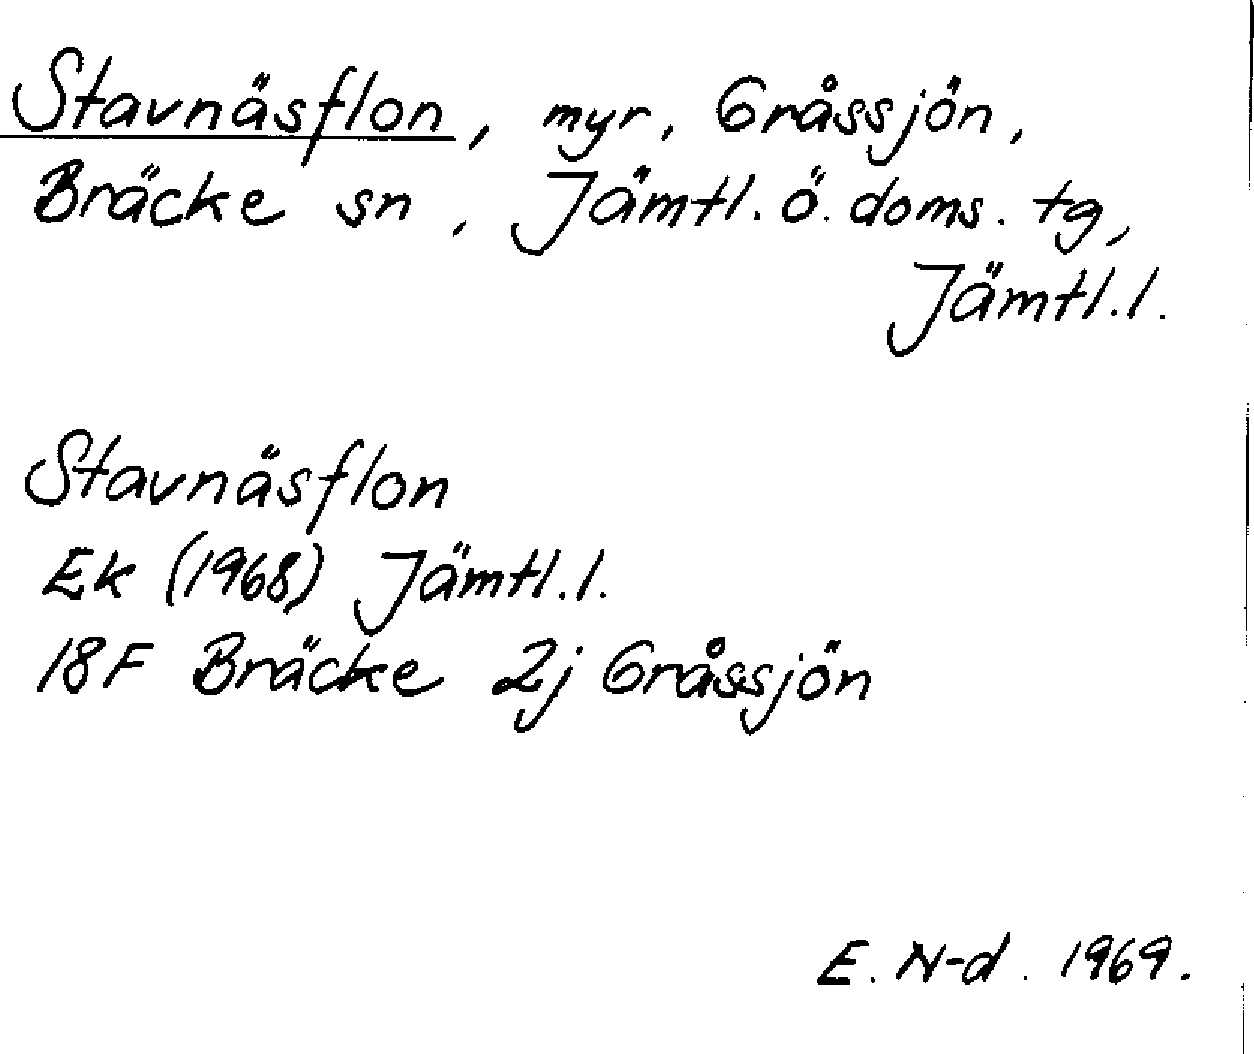 Stavnäsflon, myr, Gråssjön,
Bräcke sn, Jämtl. ö. doms. tg,
Jämtl. l.
Stavnäsflon
Ek (1968) Jämtl. l.
18F Bräcke 2j Gråssjön
E. N-d. 1969.